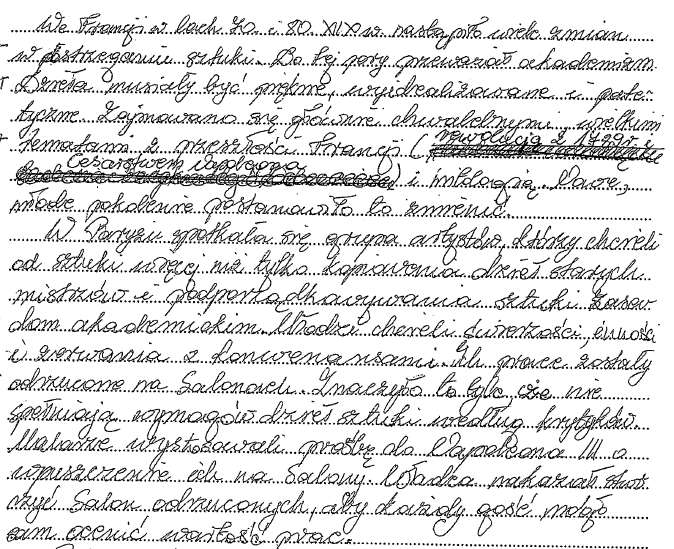 We Francji w lach 70. i 80. XIX w nastąpiło wiele zmian
w postrzeganiu sztuki. Do tej pory przeważał akademizm.
Dzieła musiały być piękne, wyidealizowane i pate-
tyczne. Zajmowano się głównie chwalebnymi, wielkimi
tematami z przeszłości Francji ( rewolucją z 1789r. i
Cesarstwem Napoleona ) i mitologią. Nowe,
młode pokolenie postanowiło to zmienić.
W Paryżu spotkała się grupa artystów, którzy chcieli
od sztuki więcej niż tylko kopiowania dzieł starych
mistrzów i podporządkowywania sztuki zasa-
dom akademickim. Młodzi chcieli świeżości,
i zerwania z konwenansami. Ich prace zostały
odrzucone na Salonach. Znaczyło to tyle, że nie
spełniają wymogów dzieł sztuki według krytyków.
Malarze wystosowali prośbę do Napoleona III o
wpuszczenie ich na Salony. Władca nakazał stwo-
rzyć Salon odrzuconych, aby każdy gość mógł
sam ocenić wartość prac.